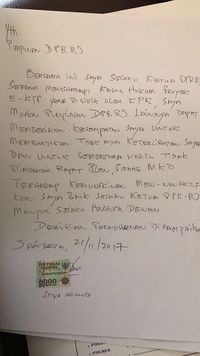 Yth.
Pimpinan DPR RI
Bersama ini saya selaku Ketua DPR
sedang menghadapi kasus hukum proyek
E-KTP yang disidik oleh KPK, saya
mohon Pimpinan DPR RI lainnya dapat
memberikan kesempatan saya untuk
membuktikan tidak ada keterlibatan saya
dan untuk sementara waktu tidak
diadakan rapat pleno, sidang MKD
terhadap kemungkinan menonaktif
kan saya baik selaku Ketua DPR-RI
maupun selaku anggota dewan.
Demikian permohonan disampaikan
Jakarta, 21/11/2017
METERAI
TEMPEL
6000
Setya Novanto